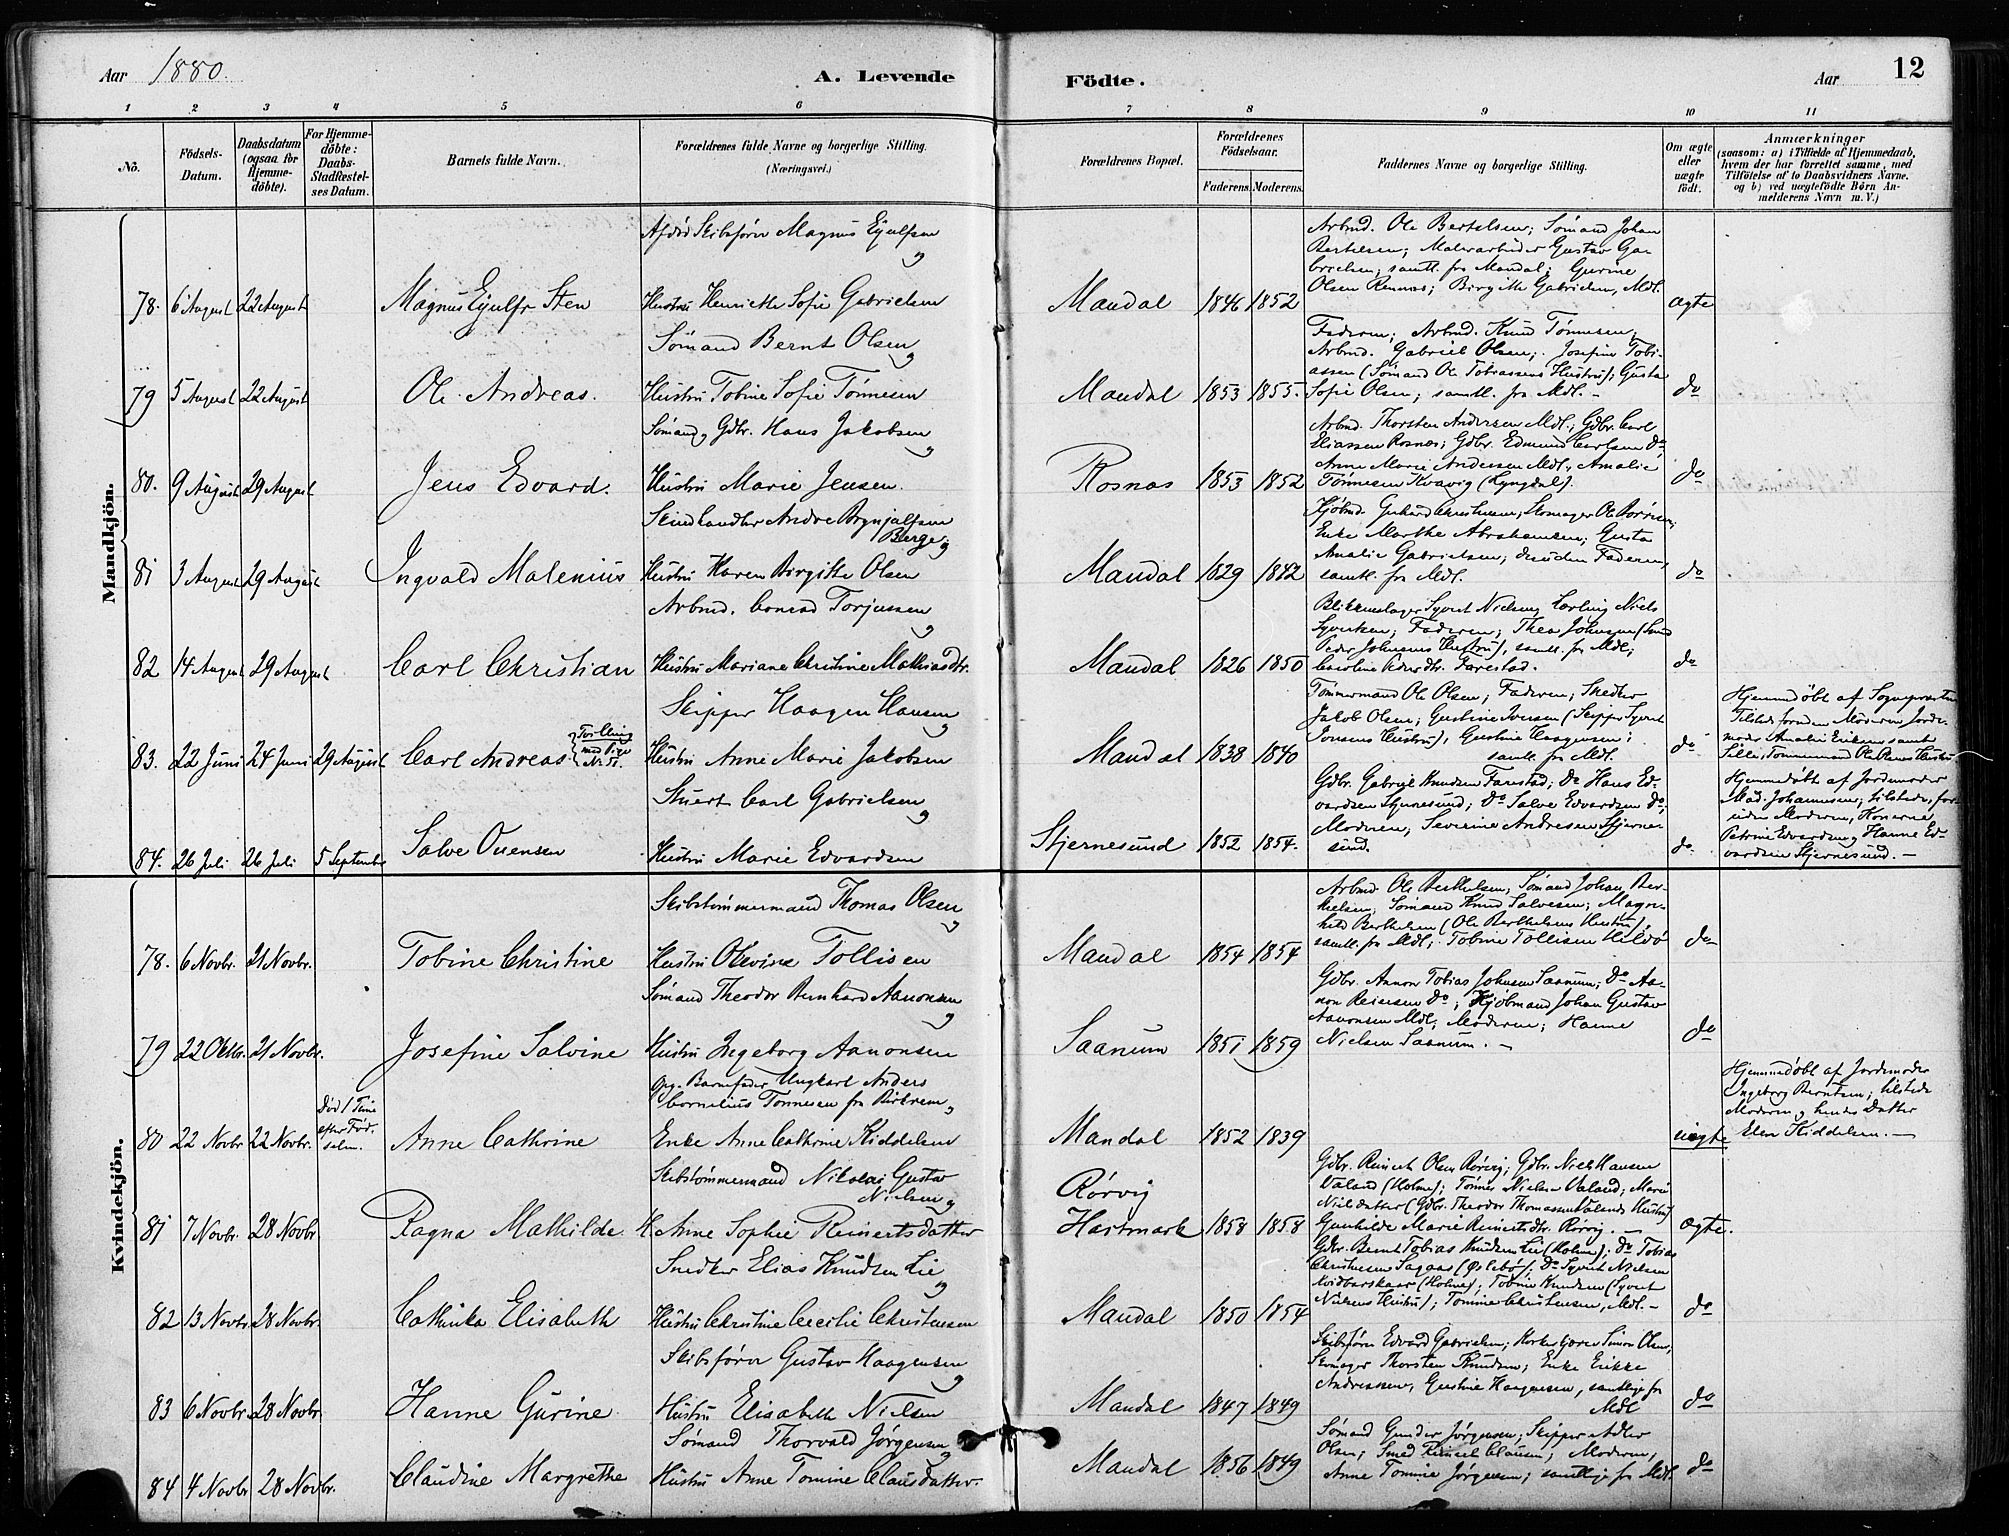 Aar 1880.
A. Levende Födte.
Aar
12
1 2 3 4 5 6 7 8 9 10 11
No.
Födsels-Datum.
Daabsdatum (ogsaa for Hjemme-döbte).
For Hjemme-döbte: Daabs-Stadfestel-ses Datum.
Barnets fulde Navn.
Forældrenes fulde Navne og borgerlige Stilling. (Næringsvei.)
Forældrenes Bopæl.
Forældrenes Födselsaar.
Faderens. Moderens.
Faddernes Navne og borgerlige Stilling.
Om ægte eller uægte födt.
Anmærkninger
(saasom: a) i Tilfælde af Hjemmedaab, hvem der har forrettet samme, med Tilföielse af to Daabsvidners Navne. og b) ved uægtefödte Börn An-melderens Navn m.V.)
Mandkjön.
Afdød Skibsfører Magnus Eyulfsen og
78. 6 August 22 August Magnus Eyulfr Sten Hustru Henriette Sofie Gabrielsen Mandal 1846 1852 ægte
Arbmd. Ole Bertelsen; Sømand Johan
Bertelsen; Malerarbeider Gustav Ga-
brielsen, samtl. fra Mandal; Gurine
Olsen; Birgitte Gabrielsen, Mdl.
Sømand Bernt Olsen og
79 5 August 22 August Ole Andreas. Hustru Tobine Sofie Tønnesen Mandal 1853 1855. do
Faderen; Arbmd. Knud Tønnesen;
Arbmd. Gabriel Olsen; Josefine Tobi-
assen (Sømand Ole Tobiassens Hustru); Gusta
Sofie Olsen; samtl. fra Mdl. -
Sømand, Gdbr. Hans Jakobsen og
80. 9 August 29 August Jens Edvard. Hustru Marie Jensen. Rosnæs 1853 1852 do
Arbmd. Thorsten Andersen Mdl.; Gdbr. Carl
Eliassen Rosnæs; Gdbr. Edmund Carlsen do;
Anne Marie Andersen Mdl., Amalie
Tønnesen Kvavig (Lyngdal).
Skindhandler Andre Brynjulfsen Berge og
81 3 August 29 August Ingvald Malenius Hustru Karen Birgitte Olsen Mandal 1829 1842 do
Kjøbmd. Gerhard Christensen; Skomager Ole
Enke Marthe Abrahamsen; Gusta
Amalie Gabrielsen; desuden Faderen,
samtl. fra Mdl.
Arbmd. Conrad Torjussen og
82 14 August 29 August Carl Christian Hustru Mariane Christine Mathiasdtr. Mandal 1826 1850 do
Blikkenslager Syvert Nielsen; Lærling Niels
Syvertsen; Faderen; Thea Johnsen (Smed
Peder Johnsens Hustru), samtl. fra Mdl;
Caroline Pedersdtr. Farestad.
Skipper Haagen Hansen og
83. 22 Juni 24 Juni 29 August Carl Andreas {Tvilling med Pige No. 51. Hustru Anne Marie Jakobsen Mandal 1838 1840 do
Tømmermand Ole Olsen; Faderen; Snedker
Jakob Olsen; Gustine Iversen (Skipper Syvert
Jonsens Hustru), Gustine Haagensen;
samtl. fra Mdl.
Hjemmedøbt af Sognepræsten
Tilstede foruden Moderen Jorde-
moder Amalie Eriksen samt
Tømmermand Ole Hustru
Styert Carl Gabrielsen og
84. 26 Juli 26 Juli 5 September Salve Ouensen Hustru Marie Edvardsen Stjernesund 1852 1854. do
Gdbr. Gabriel Knudsen Farestad; do Hans Ed-
vardsen Stjernesund; do Salve Edvardsen do;
Moderen; Severine Andresen Stjerne-
sund.
Hjemmedøbt af Jordemoder
Mad. Johannesen; tilstede, for-
uden Moderen, Konerne
Petrine Edvardsen og Hanne Ed-
vardsen Stjernesund. -
Kvindekjön.
Skibstømmermand Thomas Olsen og
78. 6 Novbr. 21 Novbr. Tobine Christine Hustru Olevine Tollisen Mandal 1854 1854 do
Arbmd. Ole Berthelsen; Sømand Johan Ber-
thelsen; Sømand Knud Salvesen; Magn-
hild Berthelsen (Ole Berthelsens Hustru),
samtl. fra Mdl; Tobine Tollisen Hildø
Sømand Theodor Bernhard Aanonsen og
79 22 Oktbr. 21 Novbr. Josefine Salvine Hustru Ingeborg Aanonsen Saanum 1851 1859 do
Gdbr. Aanon Tobias Johnsen Saanum; do Aa-
non Reiersen do; Kjøbmand Johan Gustav
Aanonsen Mdl; Moderen; Hanne
Nielsen Saanum. -
Opg. Barnefader Ungkarl Anders
Cornelius Tønnesen fra Birkrem og
80 22 Novbr 22 Novbr. Død 1 Time efter Fød-selen. Anne Cathrine Enke Anne Cathrine Kiddelsen Mandal 1852 1839 uægte
Hjemmedøbt af Jordemoder
Ingeborg Berntsen; tilstede
Moderen og hendes Datter
Elen Kiddelsen. -
Skibstømmermand Nikolai Gustav Nielsen og
81 7 Novbr. 28 Novbr Ragna Mathilde H. Anne Sophie Reinertsdatter Rørvig Hartmark 1858 1858 ægte.
Gdbr. Reinert Olsen Rørvig; Gdbr. Niels Hansen
Valand (Holme); Tønnes Nielsen Valand; Marie
Nielsdatter (Gdbr. Theodor Thomassen Valands Hustru)
Gunhilde Marie Reinertsdtr. Rørvig. -
Snedker Elias Knudsen Lie og
82 13 Novbr 28 Novbr. Cathinka Elisabeth Hustru Christine Cecilie Christensen Mandal 1850 1854 do
Gdbr. Bernt Tobias Knudsen Lie (Holme); do Tobias
Christensen (Øslebø); do Syvert Nielsen
(Holme); Tobine Knudsen (Syvert
Nielsens Hustru); Tomine Christensen, Mdl. -
Skibsfører Gustav Haagensen og
83 6 Novbr. 28 Novbr Hanne Gurine Hustru Elisabeth Nielsen Mandal 1847 1849 do
Skibsfører Edvard Gabrielsen; Simon Olsen,
Skomager Thorsten Knudsen; Enke Erikke
Andreassen, Gustine Haagensen, samtlige fra
Mdl
Sømand Thorvald Jørgensen og
84 4 Novbr 28 Novbr. Claudine Margrethe Hustru Anne Tomine Clausdatter. Mandal 1856 1849 do
Sømand Gunder Jørgensen; Skipper Adler
Olsen; Smed Reinert Clausen; Moderen;
Anne Tomine Jørgensen; samtlige fra Mdl.